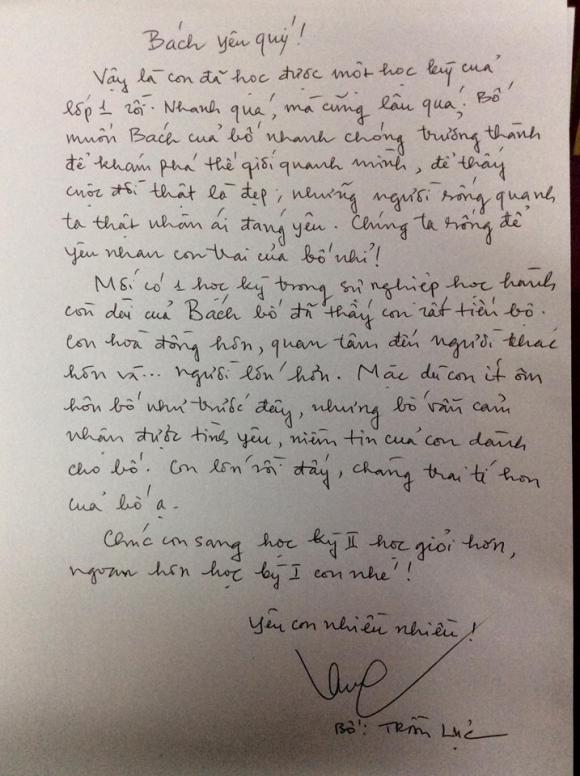 Bách yêu quý!
Vậy là con đã học được một học kỳ của
lớp 1 rồi. Nhanh quá, mà cũng lâu quá; Bố
muốn Bách của bố nhanh chóng trưởng thành
để khám phá thế giới quanh mình, để thấy
cuộc đời thật là đẹp; những người sống quanh
ta thật nhân ái đáng yêu. Chúng ta sống để
yêu nhau con trai của bố nhỉ!
Mới có 1 học kỳ trong sự nghiệp học hành
còn dài của Bách bố đã thấy con rất tiến bộ.
Con hoà đồng hơn, quan tâm đến người khác
hơn và... người lớn hơn. Mặc dù con ít ôm
hôn bố như trước đây, nhưng bố vẫn cảm
nhận được tình yêu, niềm tin của con dành
cho bố. Con lớn rồi đấy, chàng trai tí hon
của bố ạ.
Chúc con sang học kỳ II học giỏi hơn,
ngoan hơn học kỳ I con nhé!
Yêu con nhiều nhiều!
Bố: Trần Lực